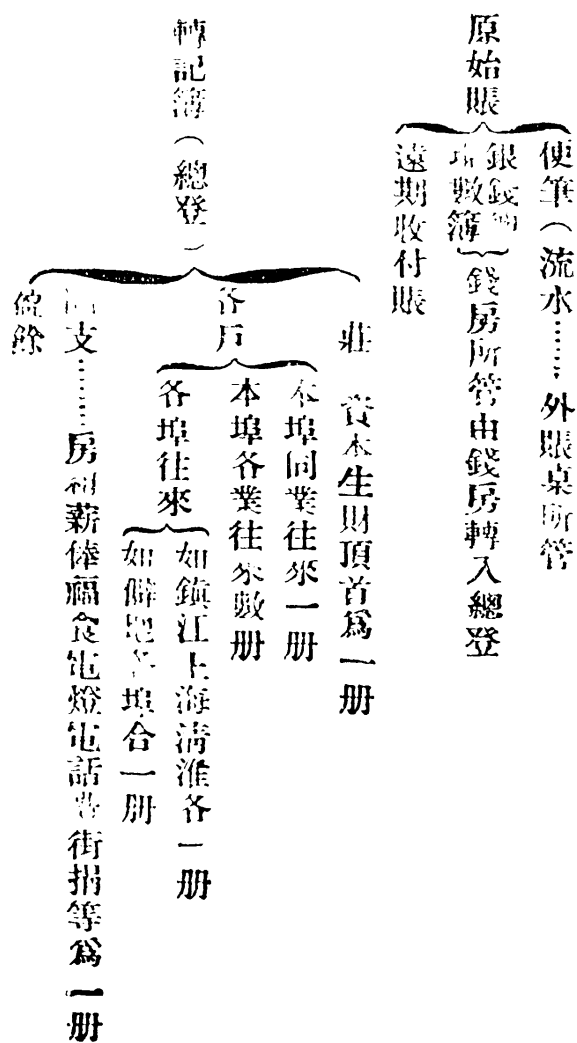 原始賬
便筆（流水……外賬桌所管
銀錢
數簿
錢房所管由錢房轉入總登
遠期收付賬
轉記簿（總登）
莊　資本生財頂首爲一册
各戶
本埠同業往來一册
本埠各業往來數册
各埠往來
如鎮江上海清淮各一册
如僻地各埠合一册
支……房租薪俸福食電燈電話費街捐等爲一册
盈餘